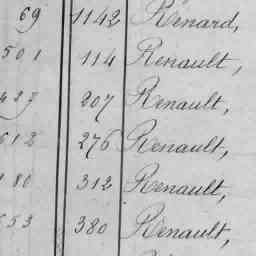 69 1142 Renard,
501 114 Renault,
427 207 Renault,
612 276 Renault,
180 312 Renault,
553 380 Renault,